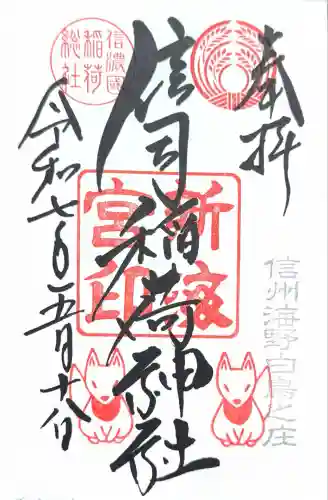 奉拝
信州海野白鳥之庄
新海
宮印
信司稲荷神社
信濃國
稲荷
総社
令和七年五月十八日